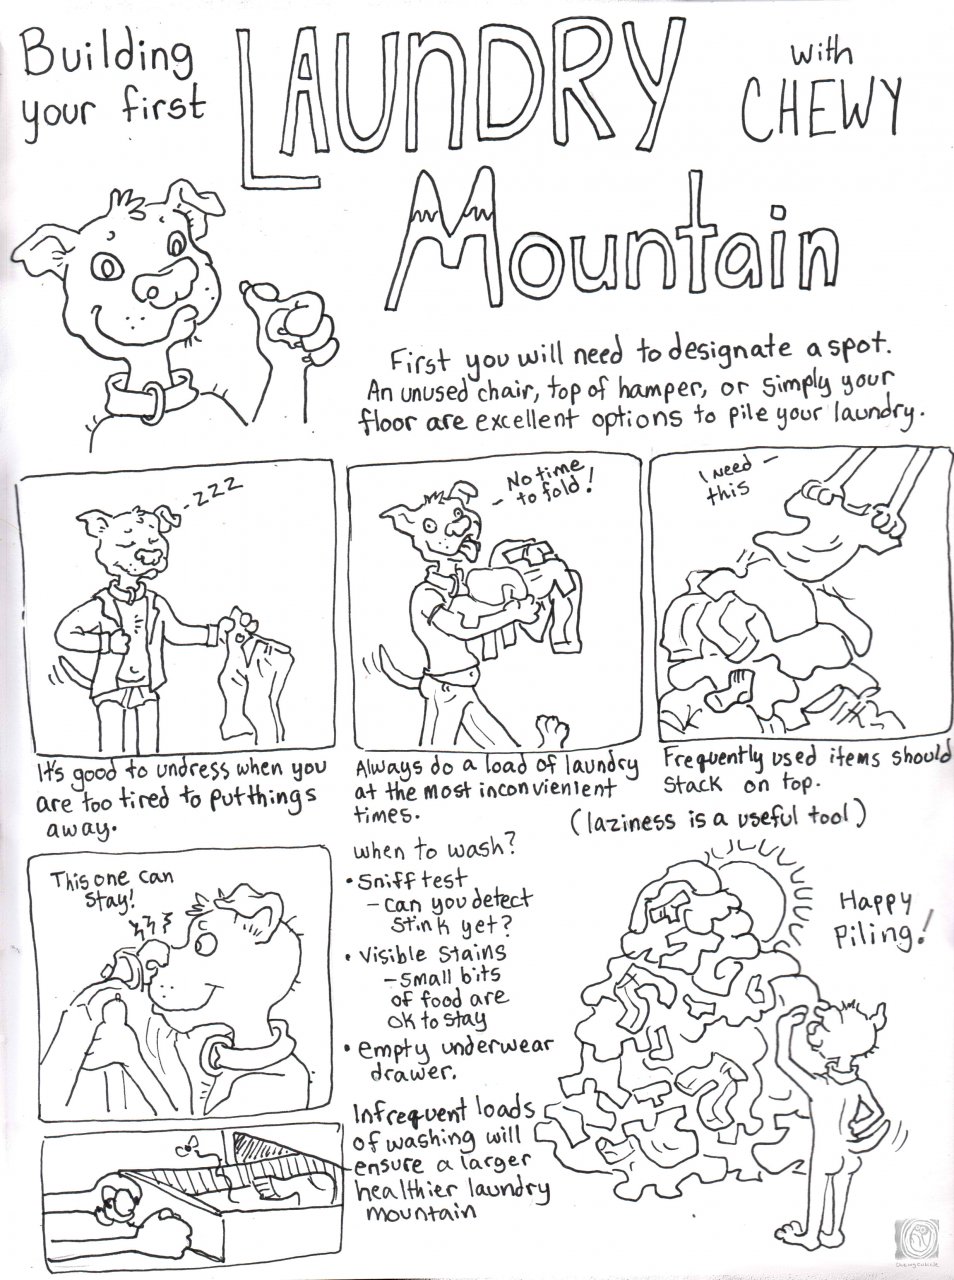 Building
your first
LAUNDRY
Mountain
with
CHEWY
First you will need to designate a spot.
An unused chair, top of hamper, or simply your
floor are excellent options to pile your laundry.
-zzz
No time
- to fold!
I need -
this
It's good to undress when you
are too tired to put things
away.
Always do a load of laundry
at the most inconvienient
times.
Frequently used items should
stack on top.
(laziness is a useful tool)
This one can
stay!
when to wash?
• Sniff test
- can you detect
stink yet?
• Visible stains
- small bits
of food are
ok to stay
• empty underwear
drawer.
Infrequent loads
of washing will
ensure a larger
healthier laundry
mountain
Happy
Piling!